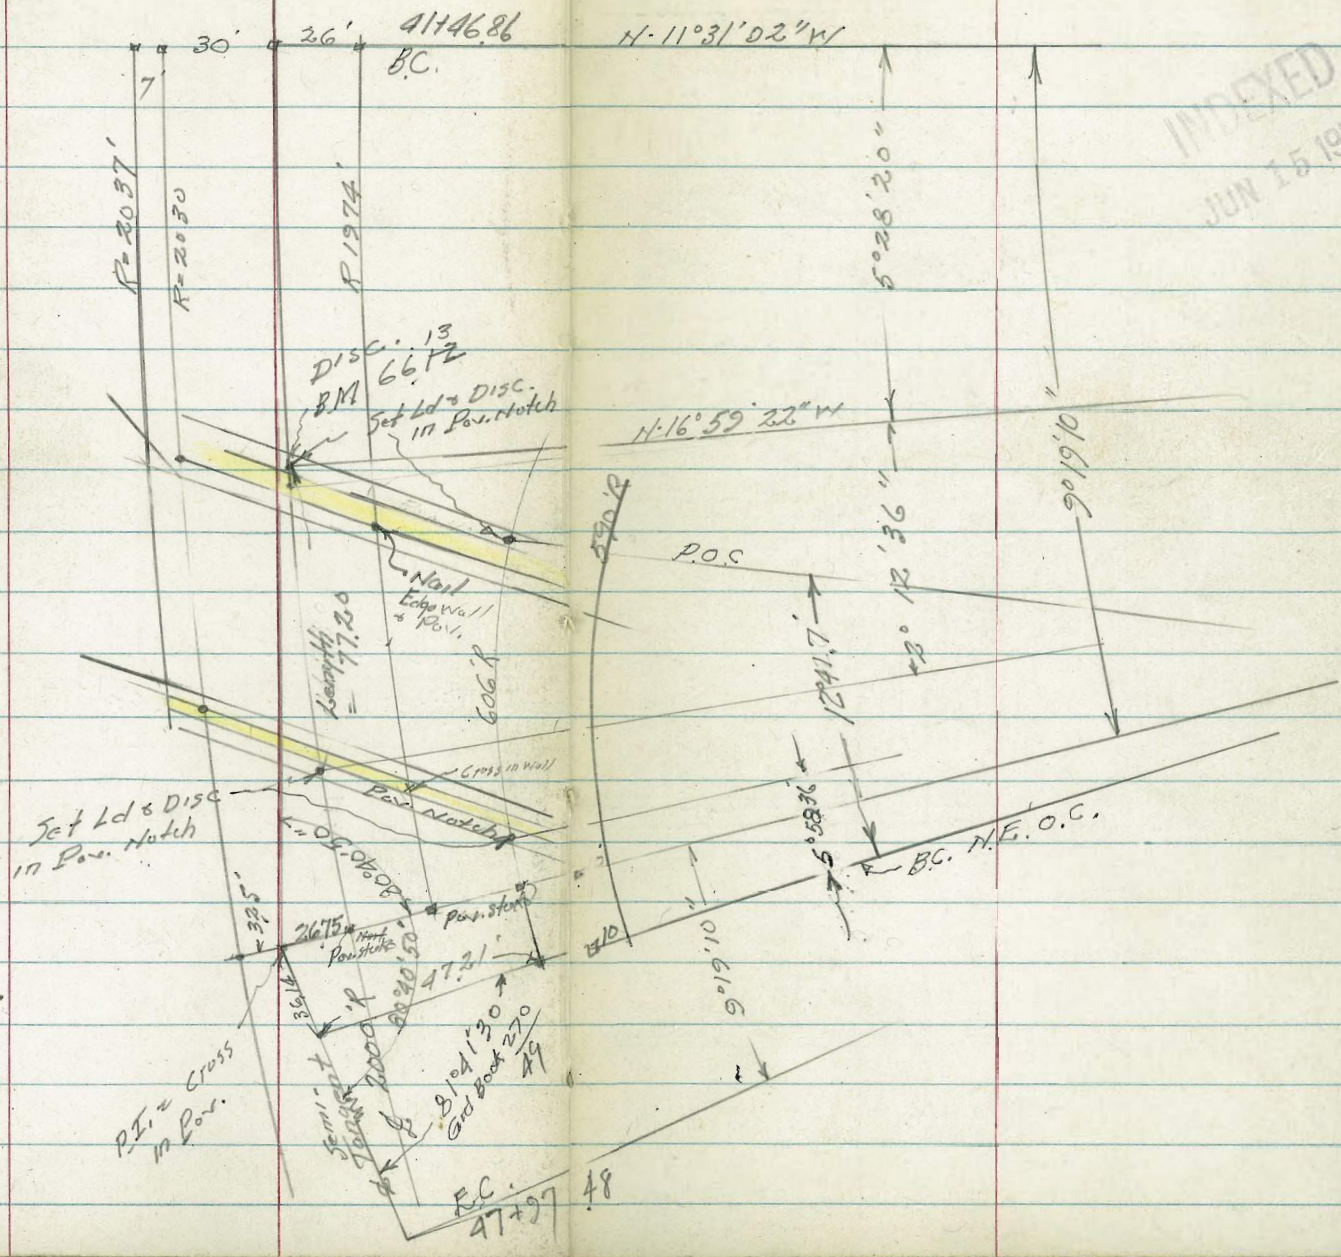 30'
26'
41+46.86
B.C.
N·11°31'02"W
7'
INDEXED
JUN 15 19
R=2037'
R=2030
R 1974'
5°28'20"
DISC. . 13
BM 66.12
Set Ld & DISC.
in Pav. Notch
N·16°59'22"W
9°19'10"
590'R
P.O.C
2°12'36"
Nail
Edge Wall
& Pav.
Length
= 77.20
606'R
12°41'17"
Cross in Wall
Pav. Notch
Set Ld & DISC
in Pav. Notch
80°40'50"
5°58'36"
B.C. N.E. O.C.
3.25'
26.75
Pav. stone
Pav. stone
80°40'50"
47.21'
10
9°19'10"
36.14
P.I. = Cross
in Pav.
Semi-
Tangent
₵ 2000'R
81°41'30
Grd Book 270
49
E.C.
47+97 48